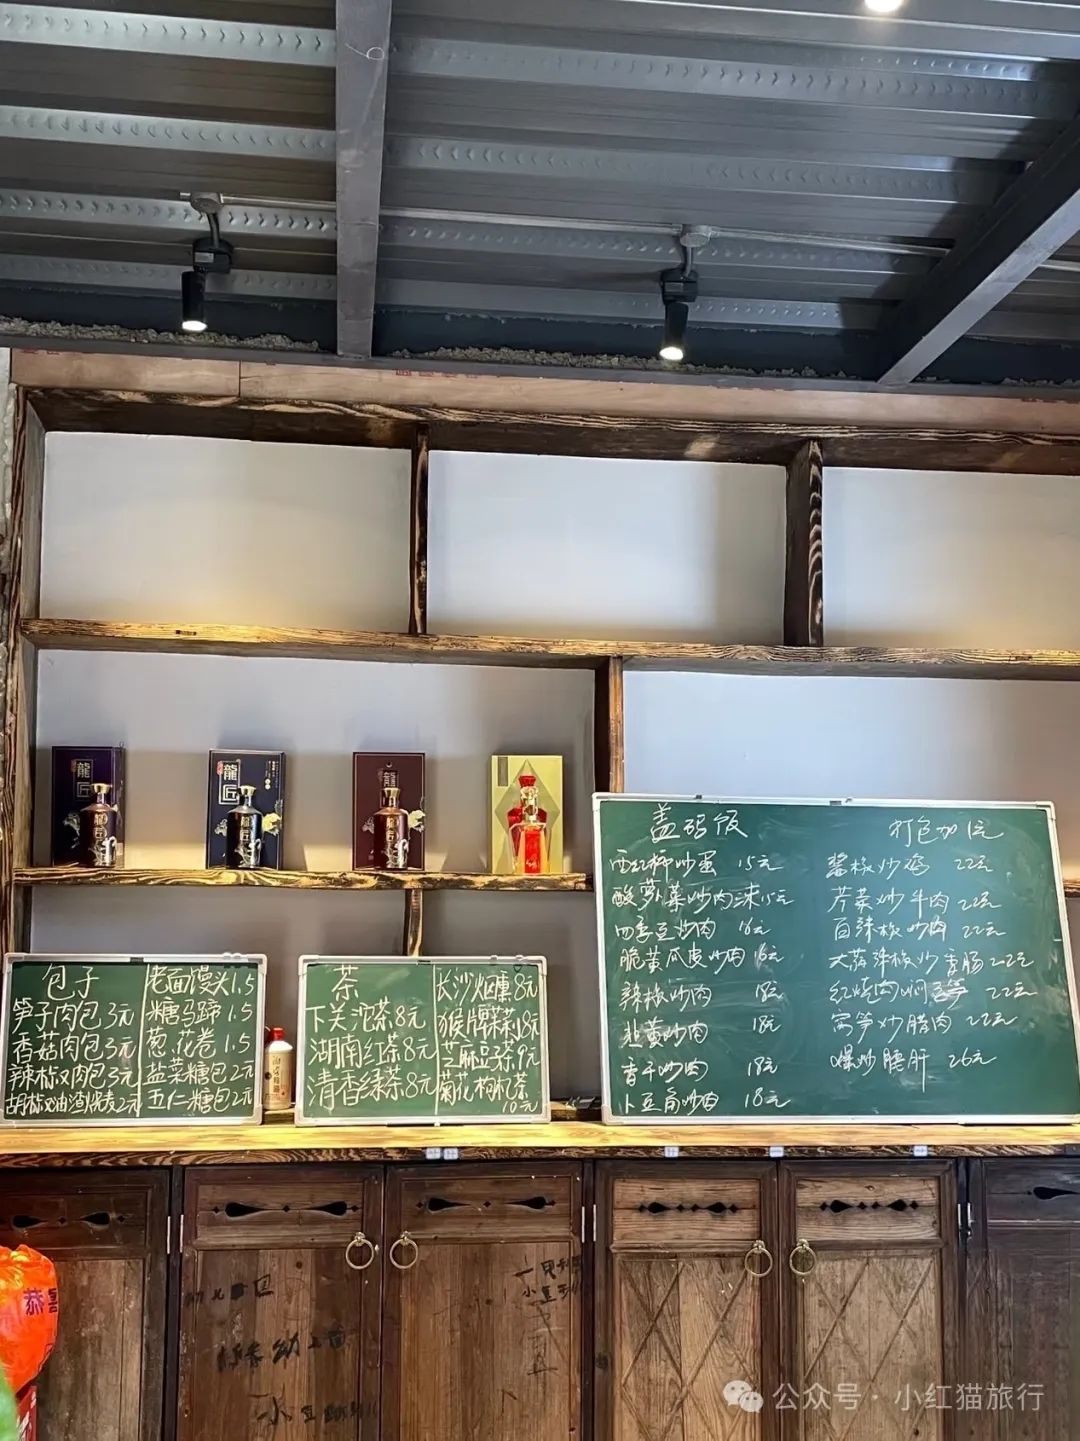 龍匠
龍匠
龍匠
包子
笋子肉包 3元
香菇肉包 3元
辣椒肉包 3元
胡椒油渣烧麦 2元
老面馒头 1.5
糖马蹄 1.5
葱花卷 1.5
盐菜糖包 2元
五仁糖包 2元
茶
下关沱茶 8元
湖南红茶 8元
清香绿茶 8元
长沙烟熏 8元
猴牌茉莉 18元
芝麻豆茶 9元
菊花枸杞茶
10元
盖码饭
西红柿炒蛋 15元
酸萝卜菜炒肉沫 15元
四季豆炒肉 16元
脆黄瓜皮炒肉 16元
辣椒炒肉 18元
韭黄炒肉 18元
香干炒肉 18元
卜豆角炒肉 18元
打包加1元
酱椒炒鸡 22元
芹菜炒牛肉 22元
白辣椒炒肉 22元
大蒜辣椒炒香肠 22元
红烧肉焖笋 22元
窝笋炒腊肉 22元
爆炒腰肝 26元
恭喜
公众号·小红猫旅行